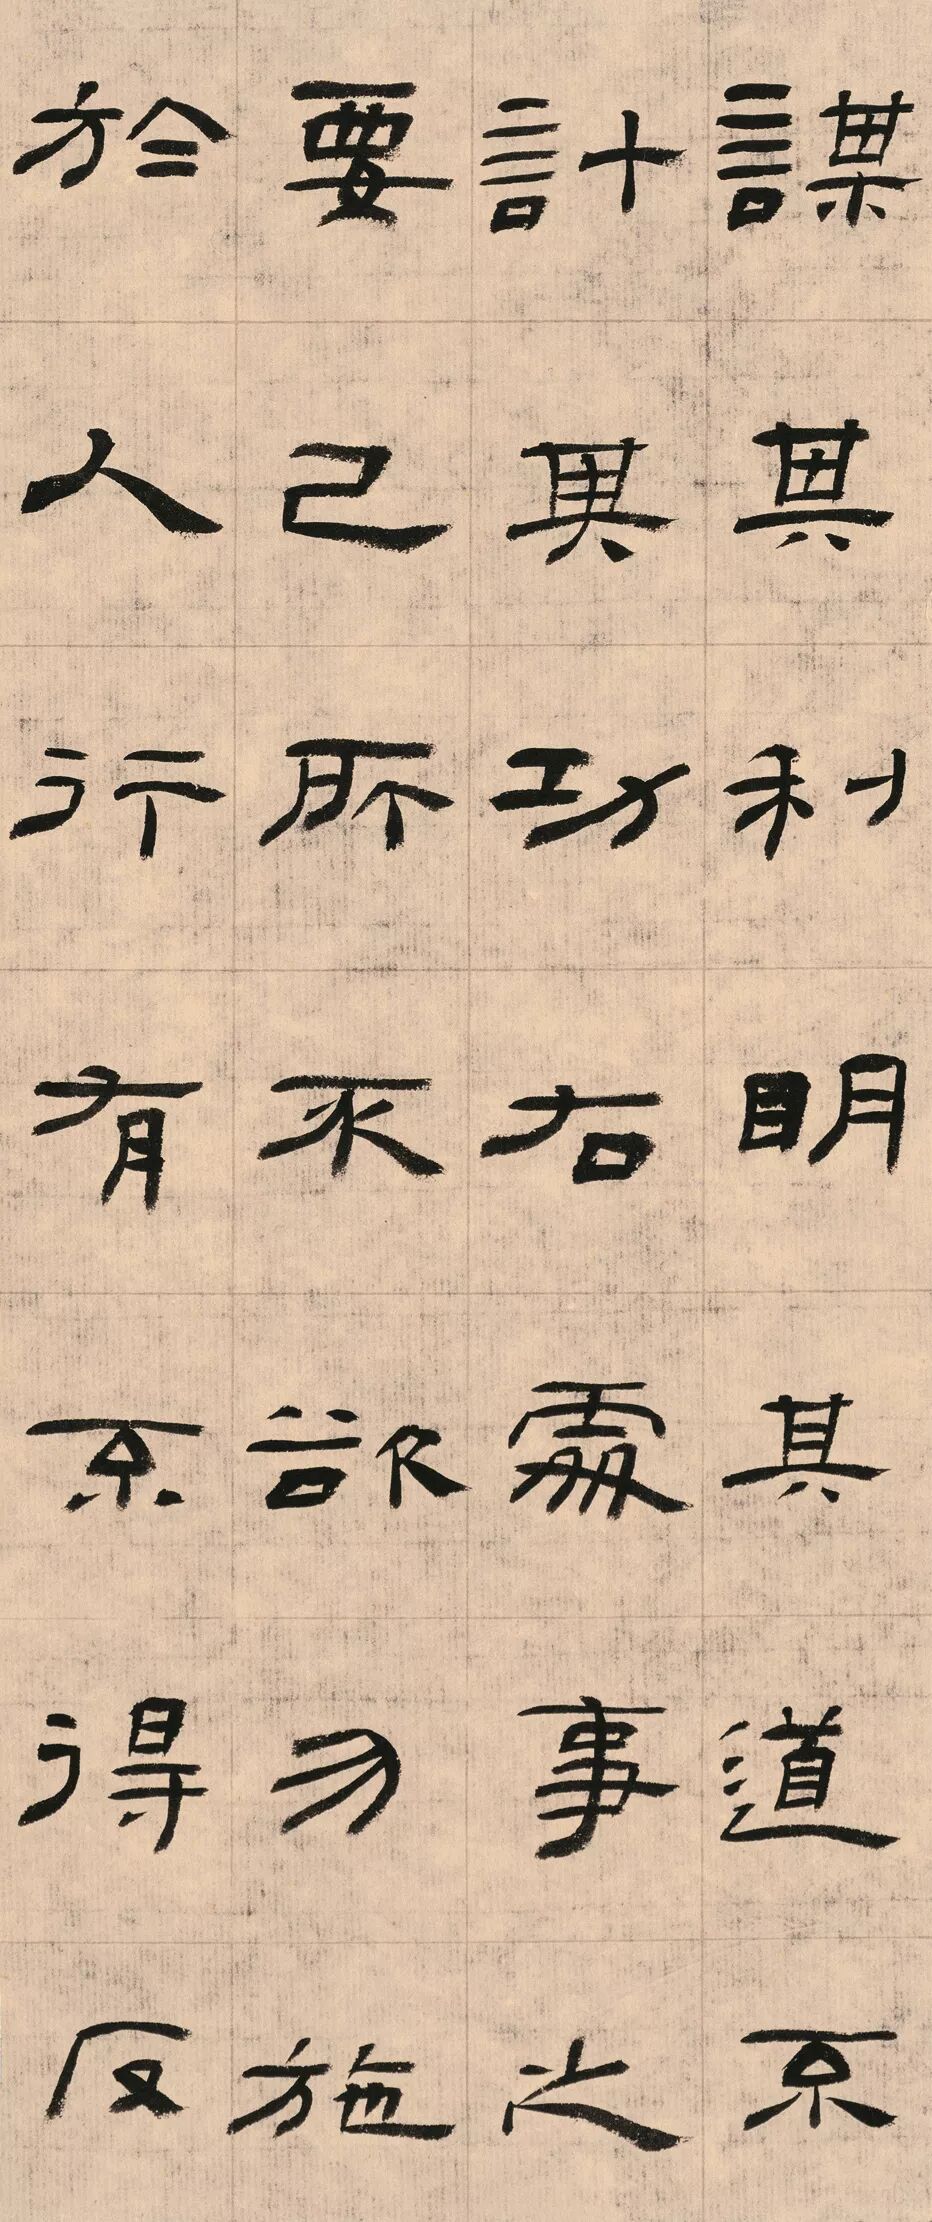 謀其利明其道不
計其功右處事之
要己所不欲勿施
於人行有不得反